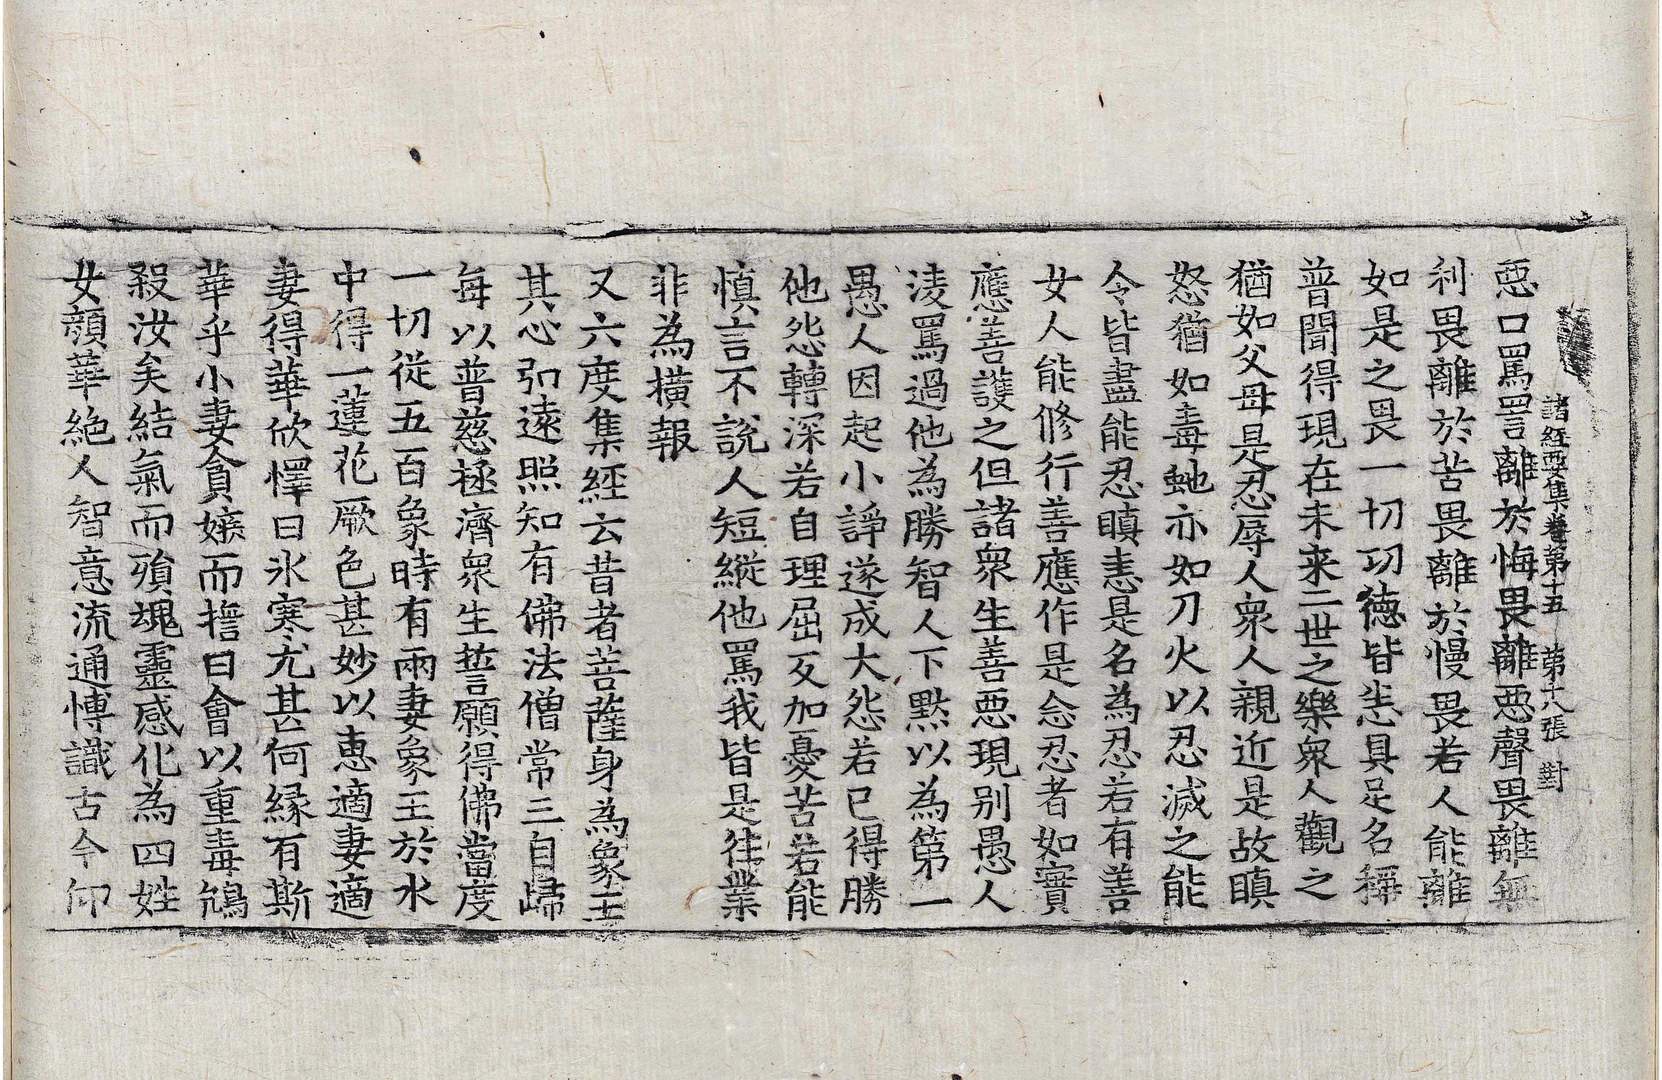 諸經要集卷第十五　第十八張　對
惡口罵詈離於悔畏離惡聲畏離無
利畏離於苦畏離於慢畏若人能離
如是之畏一切功德皆悉具足名稱
普聞得現在未来二世之樂衆人觀之
猶如父母是忍辱人衆人親近是故瞋
怒猶如毒虵亦如刀火以忍滅之能
令皆盡能忍瞋恚是名為忍若有善
女人能修行善應作是念忍者如寶
應善護之但諸衆生善惡現别愚人
淩罵過他為勝智人下默以為第一
愚人因起小諍遂成大怨若已得勝
他怨轉深若自理屈反加憂苦若能
慎言不說人短縱他罵我皆是往業
非為橫報
又六度集經云昔者菩薩身為象王
其心弘遠照知有佛法僧常三自歸
每以普慈拯濟衆生誓願得佛當度
一切從五百象時有兩妻象王於水
中得一蓮花厥色甚妙以惠適妻適
妻得華欣懌曰氷寒尤甚何緣有斯
華乎小妻貪嫉而㨾曰會以重毒鴆
殺汝矣結氣而殞魂靈感化為四姓
女顏華絶人智意流通博識古今仰